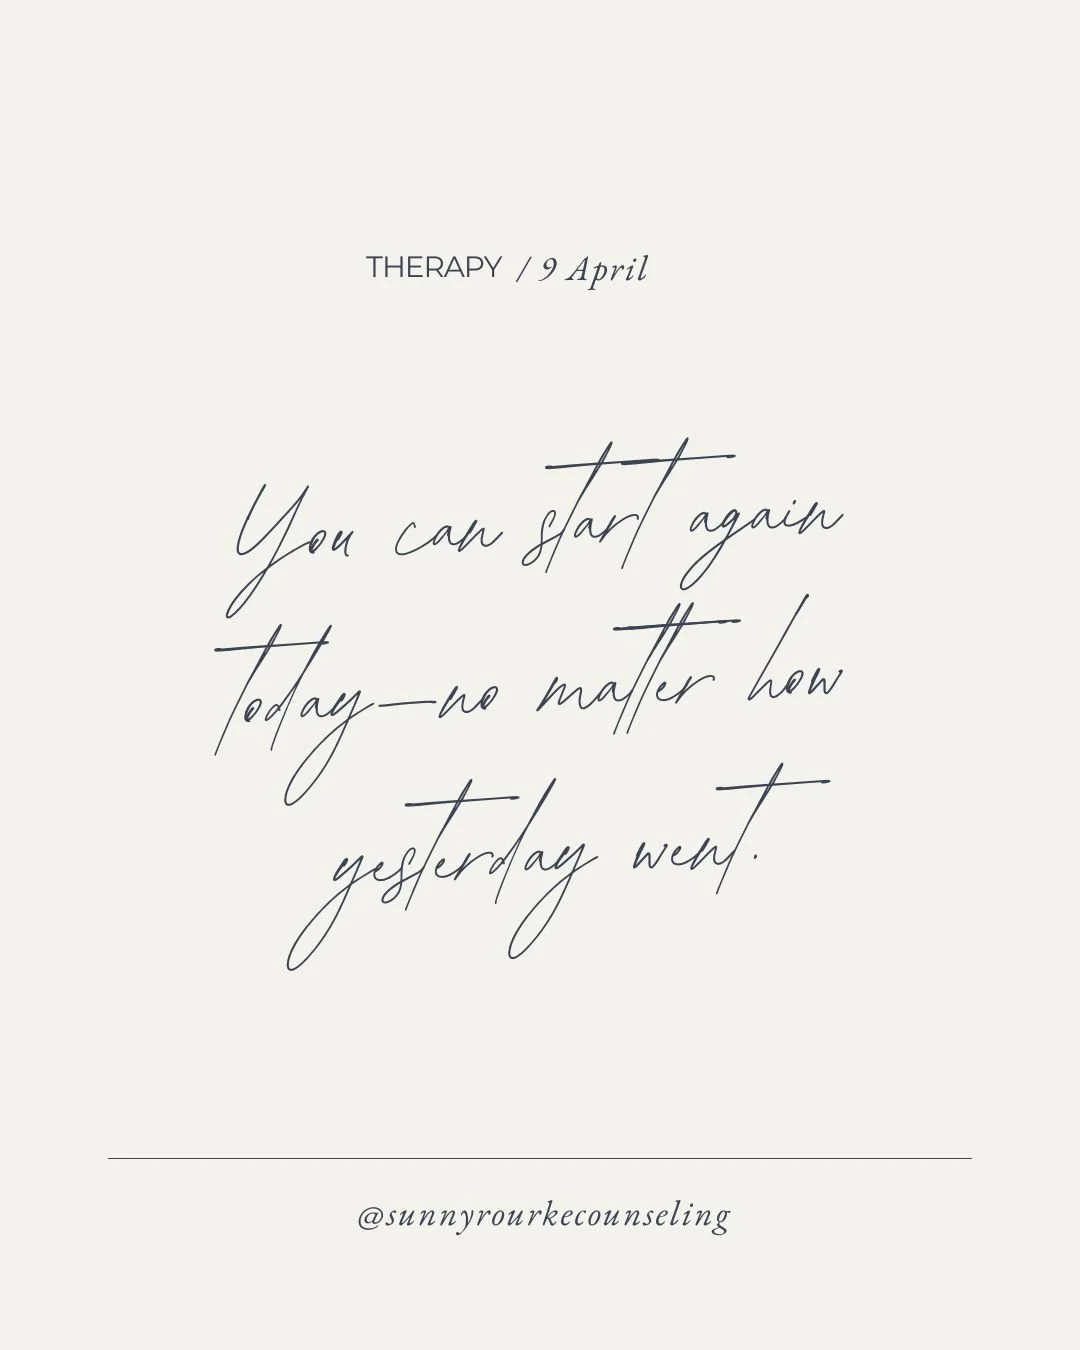 THERAPY / 9 April
You can start again
today—no matter how
yesterday went.
@sunnyrourkecounseling